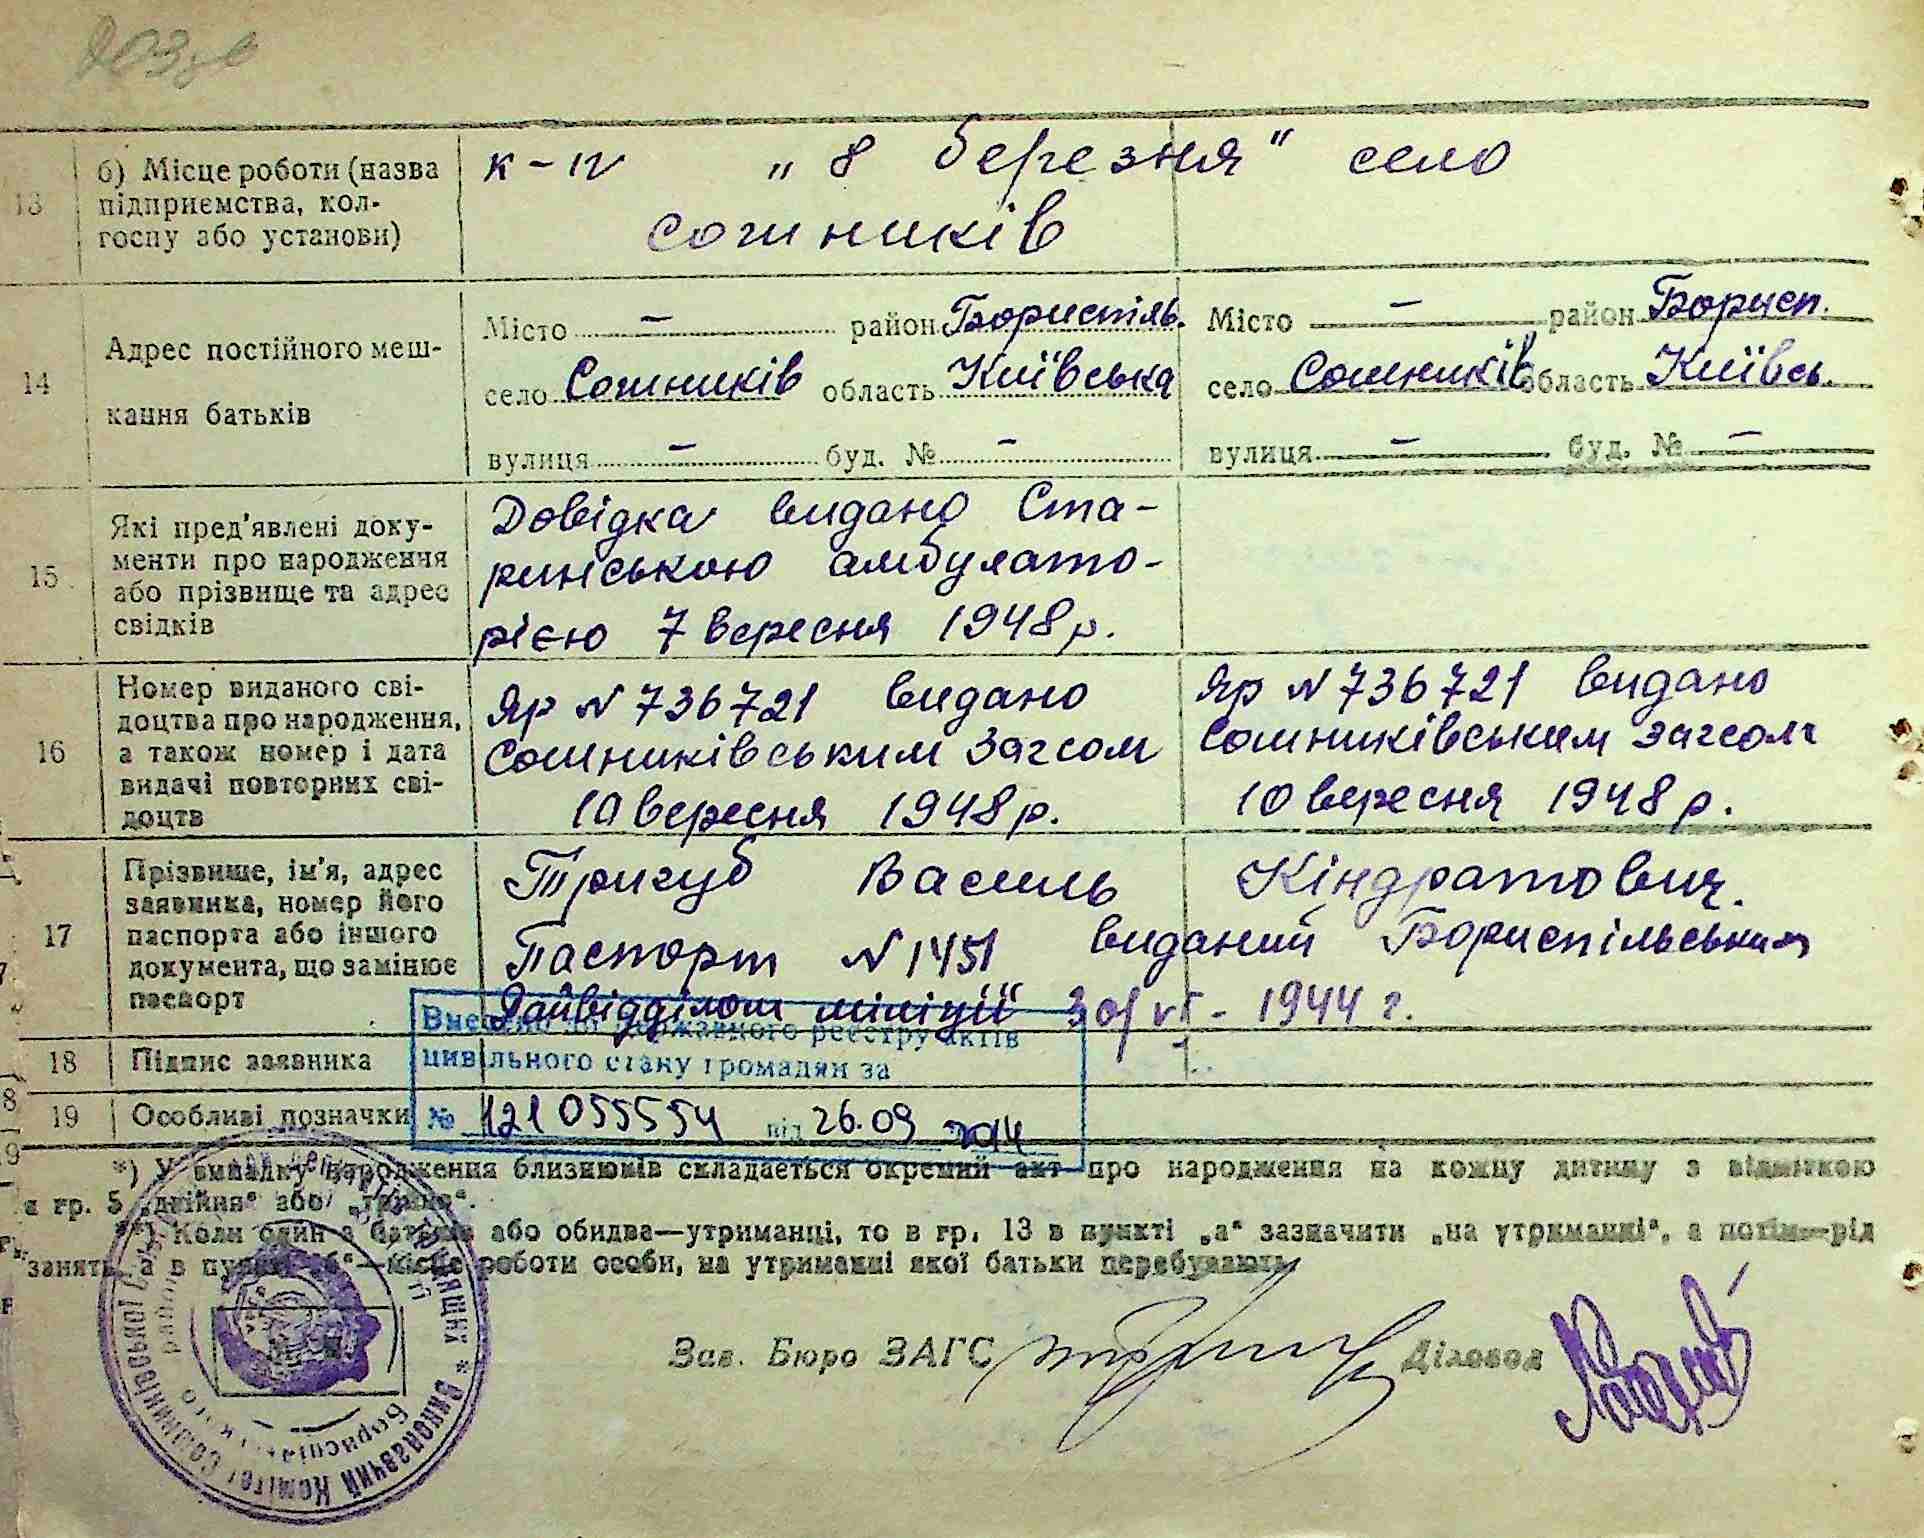 13
б) Місце роботи (назва
підприємства, кол-
госпу або установи)
к-п „8 березня“ село
Сошників
14
Адрес постійного меш-
кання батьків
Місто – район Бориспіль.
село Сошників область Київська
вулиця – буд. № –
Місто – район Борисп.
село Сошників область Київсь.
вулиця – буд. № –
15
Які пред'явлені доку-
менти про народження
або прізвище та адрес
свідків
Довідка видано Ста-
ринською амбулато-
рією 7 вересня 1948 р.
16
Номер виданого сві-
доцтва про народження,
а також номер і дата
видачі повторних сві-
доцтв
Яр N 736721 видано
Сошниківським Загсом
10 вересня 1948 р.
Яр N 736721 видано
Сошниківським Загсом
10 вересня 1948 р.
17
Прізвище, ім'я, адрес
заявника, номер його
паспорта або іншого
документа, що замінює
паспорт
Тригуб Василь Кіндратович.
Паспорт N 1451 виданий Бориспільським
Райвідділом міліції 1944 г.
18
Підпис заявника
19
Особливі позначки
Внесено до Державного реєстру актів
цивільного стану громадян за
№ 121055554 від 26.09 2014
*) У випадку народження близнюків складається окремий акт про народження на кожну дитину з відміткою
в гр. 5 „двійня“ або „трійня“.
**) Коли один з батьків або обидва—утриманці, то в гр. 13 в пункті „а“ зазначити „на утриманні“, а потім—рід
занять, а в пункті „б“—місце роботи особи, на утриманні якої батьки перебувають.
Зав. Бюро ЗАГС
Діловод
Виконавчий Комітет Сошниківської
Бориспільського району